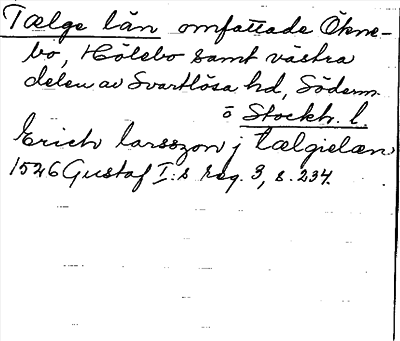 Tælge län omfattade Ökne-
bo, Hölebo samt västra
delen av Svartlösa hd, Söderm.
o Stockh. l.
Erich larsszon j tælgielæn
1526 Gustaf I:s reg. 3, s. 234.